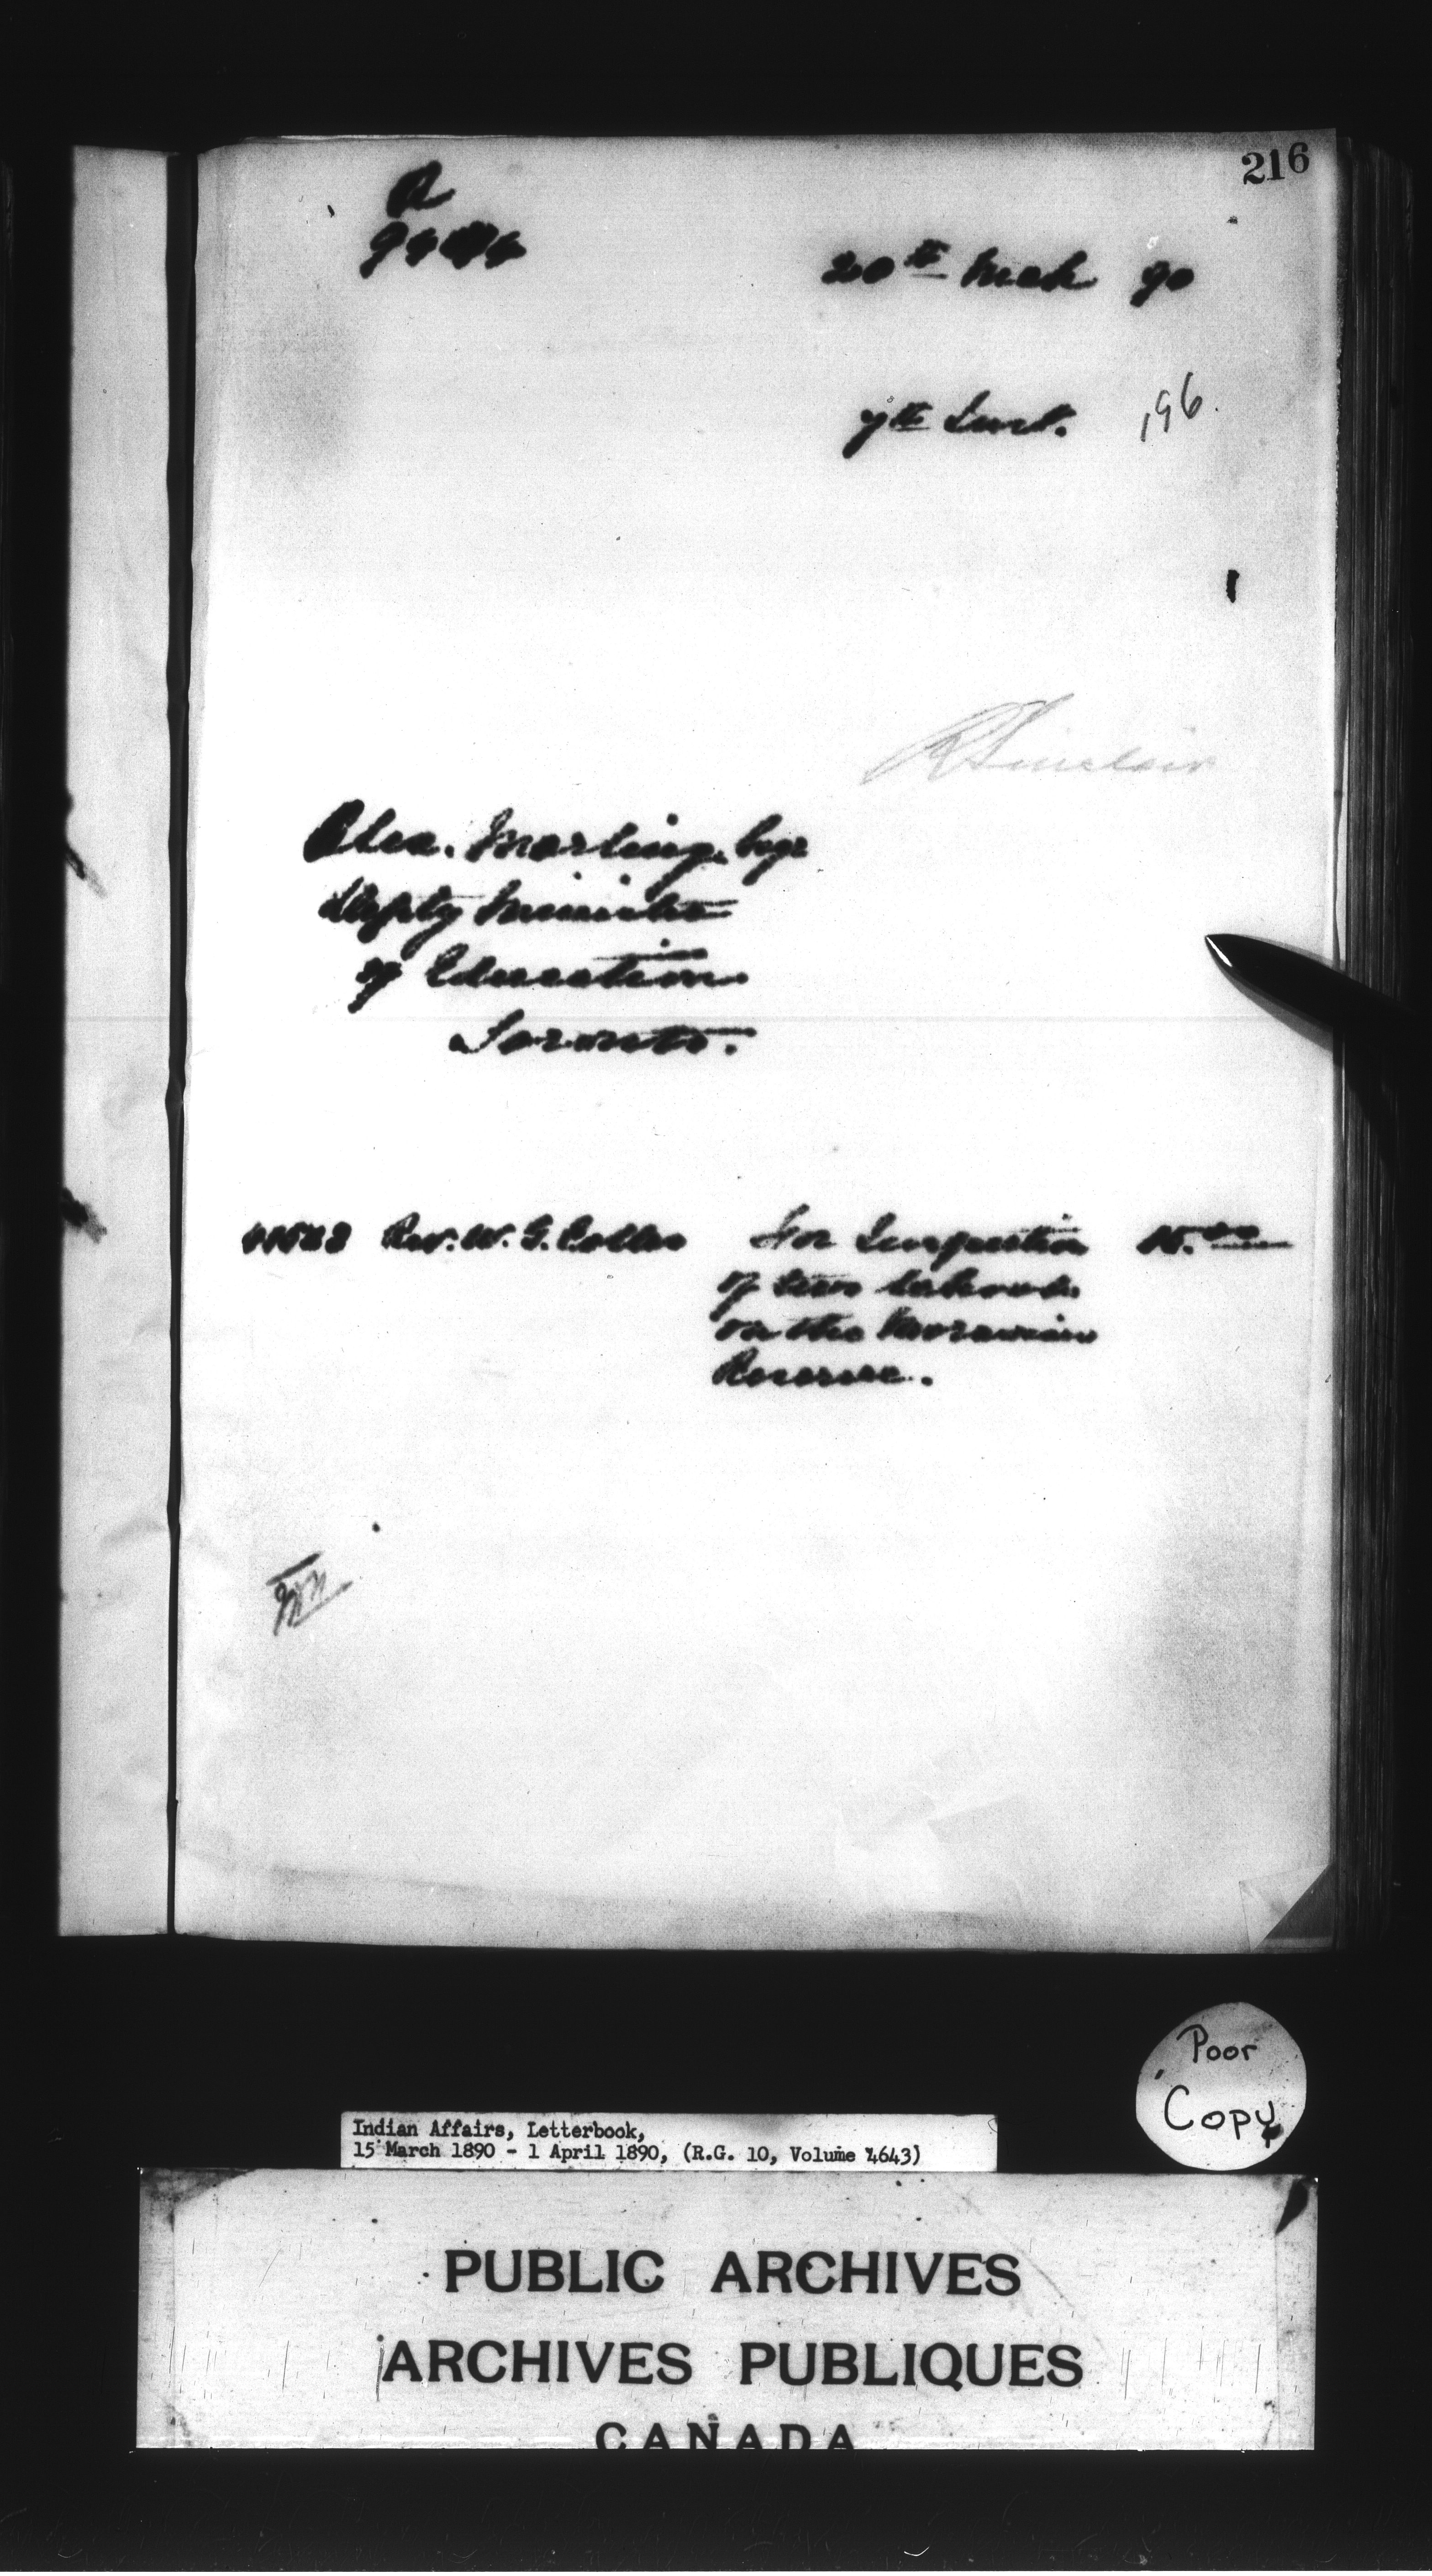 216
20th Mch 90
7th Inst. 196.
R Sinclair
Alex. Marling Esqr
Depty Minister
of Education
Toronto.
Rev. W. G. For Inspection
of two schools
on the Moravian
Reserve.
Poor
Copy
Indian Affairs, Letterbook,
15 March 1890 - 1 April 1890, (R.G. 10, Volume 4643)
PUBLIC ARCHIVES
ARCHIVES PUBLIQUES
CANADA